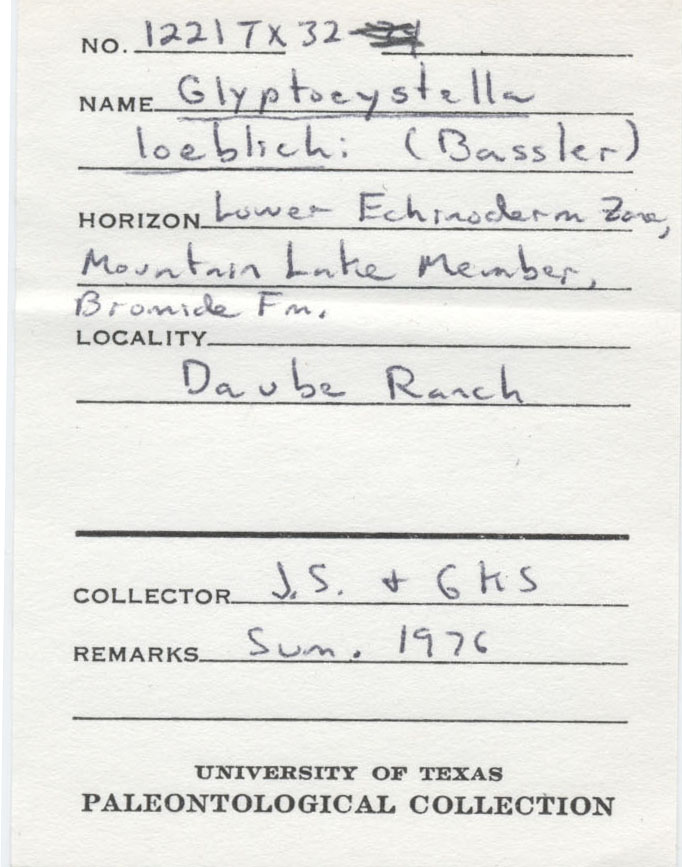 NO. 1221 TX 32-
NAME Glyptocystella
loeblichi (Bassler)
HORIZON Lower Echinoderm Zone,
Mountain Lake Member,
Bromide Fm.
LOCALITY
Daube Ranch
COLLECTOR J.S. + GKS
REMARKS Sum. 1976
UNIVERSITY OF TEXAS
PALEONTOLOGICAL COLLECTION